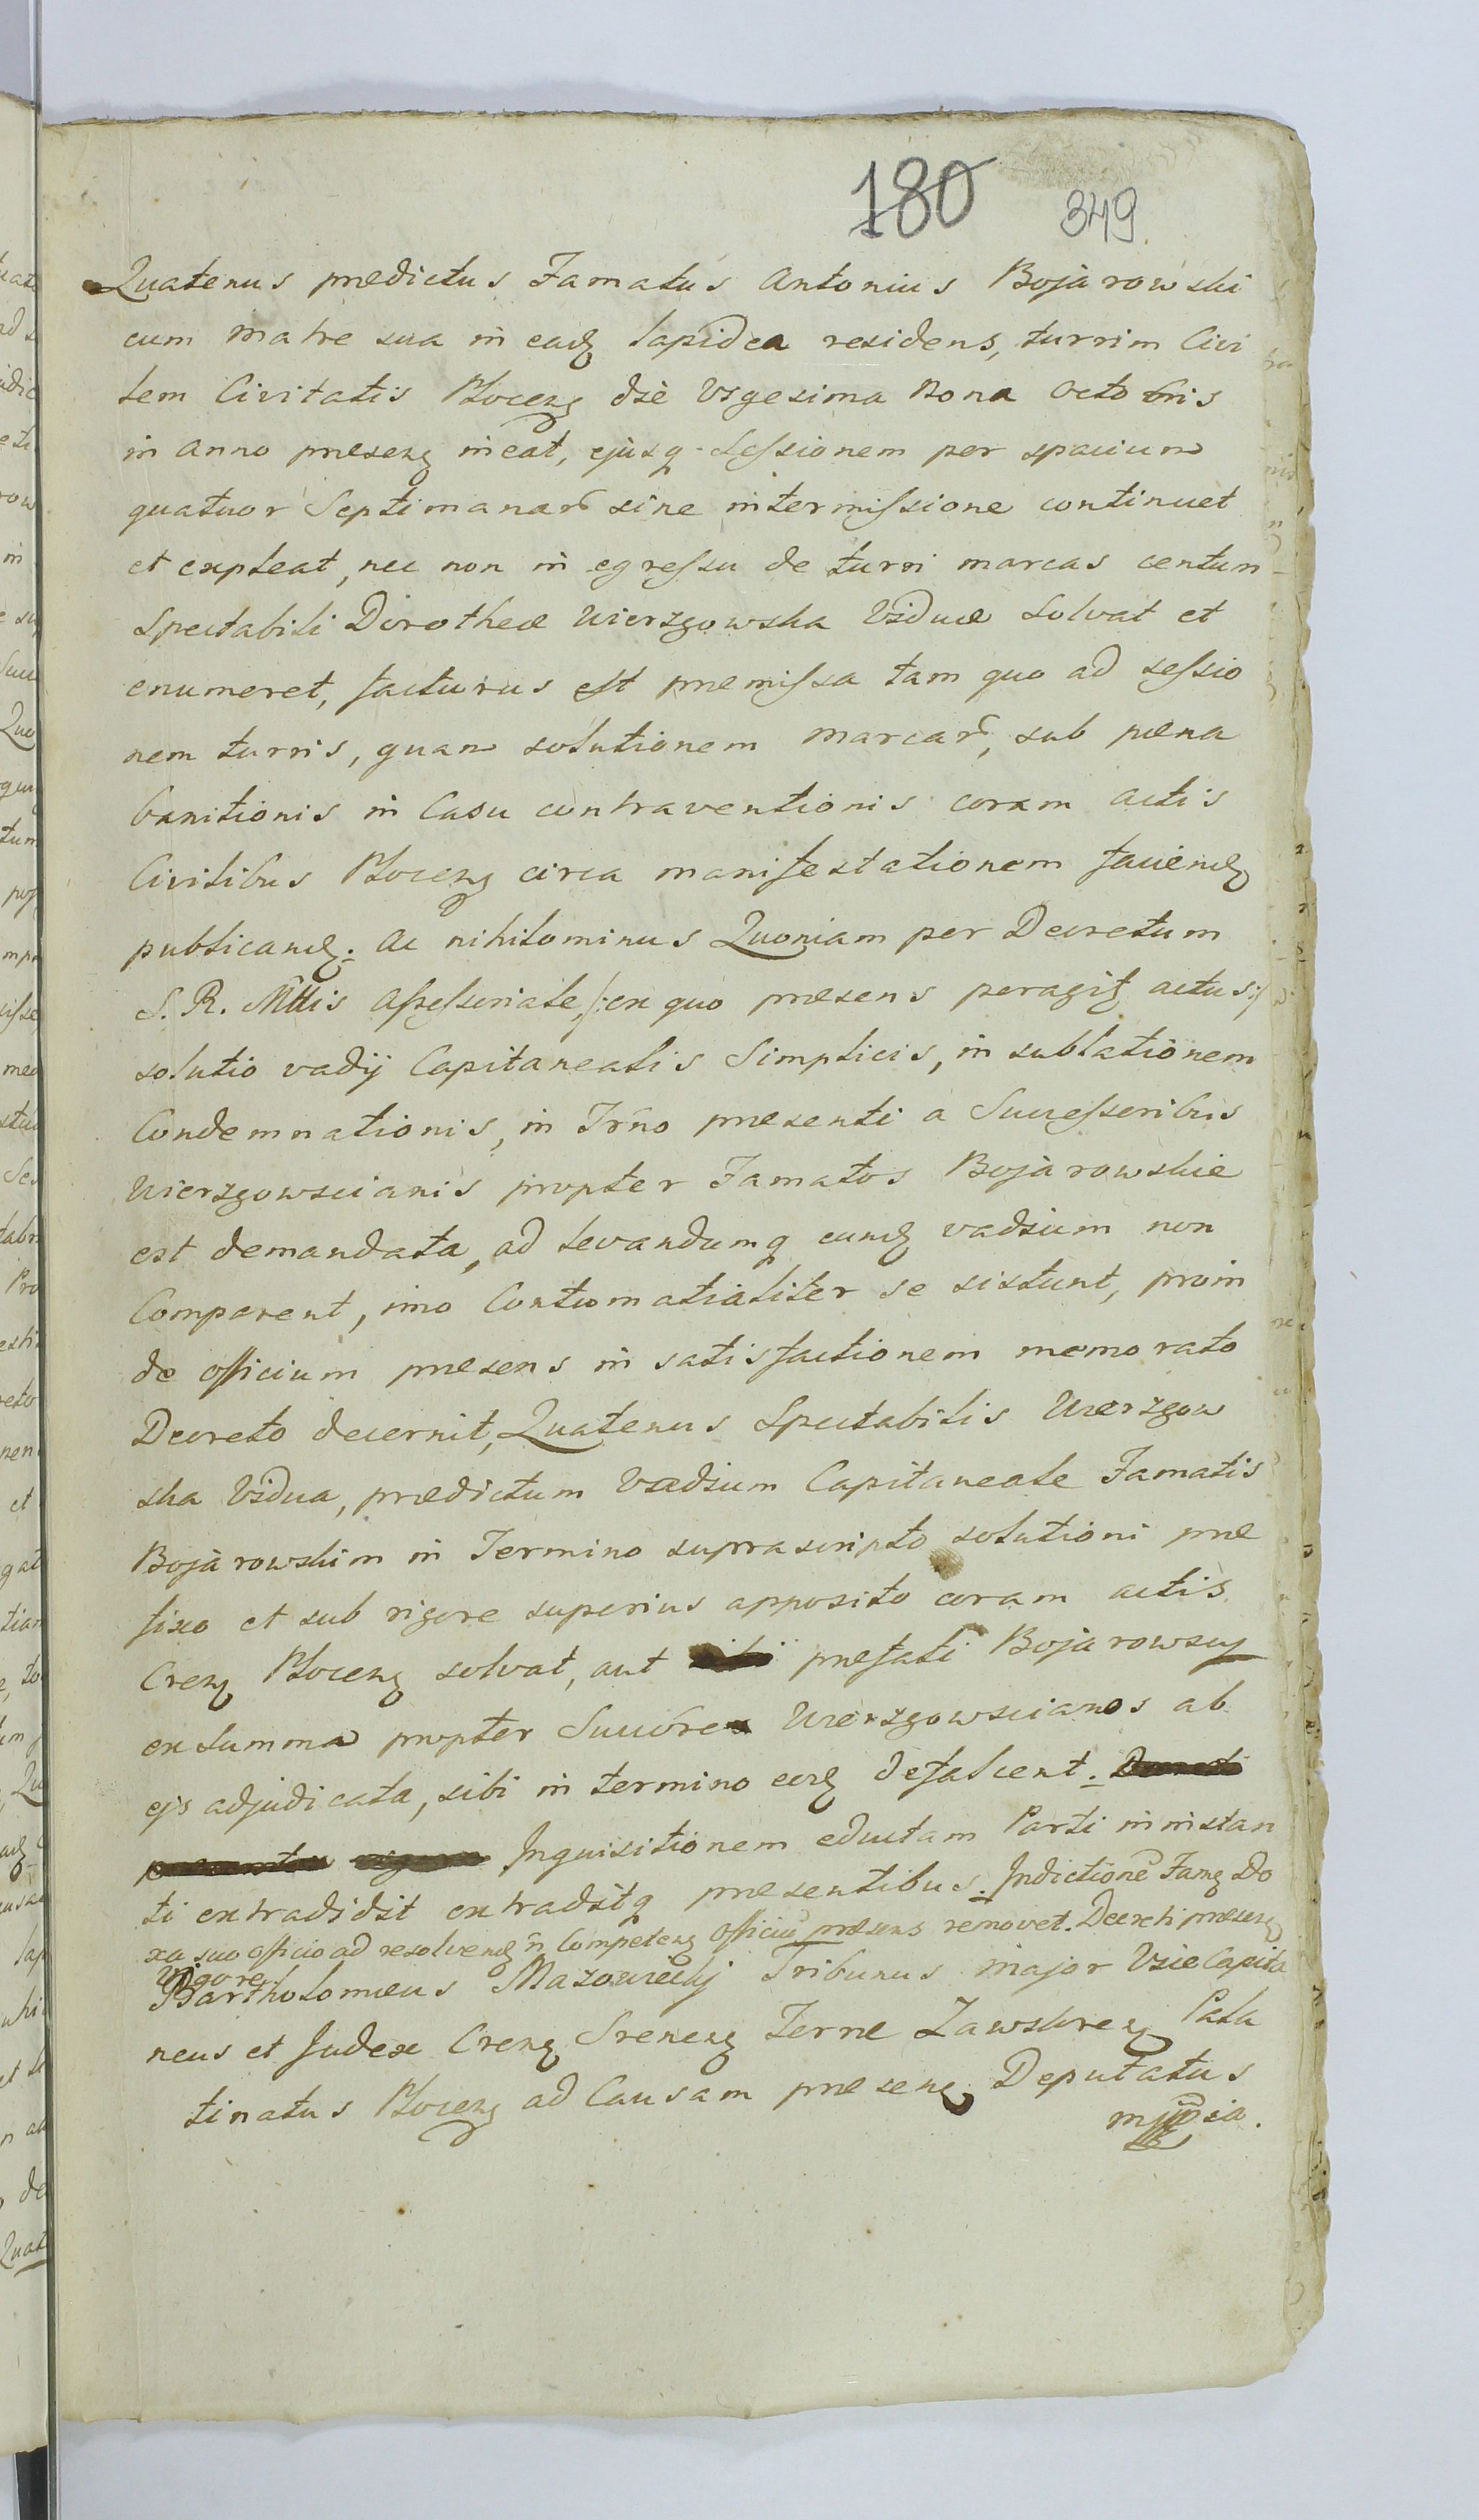 180 349.
Quatenus prædictus Famatus Antonius Bojarowski
cum Matre sua in eadꝫ lapidea residens, turrim Civi
lem Civitatis Plocenꝫ die Vigesima Nona Octobris
in Anno præsenꝫ ineat, ejusqꝫ Sessionem per spacium
quatuor Septimanarũ sine intermissione continuet
et expleat, nec non in egressu de turri marcas centum
Spectabili Dorotheæ Wierzgowska Viduæ Solvat et
enumeret, facturus est præmissa tam quo ad sessio
nem turris, quam solutionem Marcarũ, sub pæna
banitionis in Casu contraventionis coram Actis
Civilibus Plocenꝫ circa manifestationem faciendꝫ
publicandꝫ. Ac nihilominus Quoniam per Decretum
S. R. Mttis Assessoriale, /:ex quo præsens peragitꝫ actus:/
solutio vadij Capitanealis Simplicis, in sublationem
Condemnationis, in Trno præsenti a Successoribus
Wierzgowscianis propter Famatos Bojarowskie
est demandata, ad levandumqꝫ eundꝫ vadium non
Comparent, imo Contumatialiter se sistunt, proin
de officium præsens in satisfactionem memorato
Decreto decernit, Quatenus Spectabilis Wierzgow
ska Vidua, prædictum Vadium Capitaneale Famatis
Bojarowskim in Termino suprascripto solutioni præ
fixo et sub rigore superius apposito coram actis
Crenꝫ Plocenꝫ solvat, aut præfati Bojarowscy
ex Summa propter Succőres Wierzgowscianos ab
ejs adjudicata, sibi in termino eodꝫ defalcent. Decreti
præsentis vigore Inquisitionem eductam Parti instan
ti extradidit extraditqꝫ præsentibus. Indictionẽ Famꝫ Do
xa suo officio ad resolvendꝫ ñ Competenꝫ officiũ præsens removet. Decreti præsenꝫ
Vigore.
Bartholomæus Mazowiecky Tribunus major Vice Capita
neus et Judex Crenꝫ Srenenꝫ Terræ Zawskrenꝫ Pala
tinatus Plocenꝫ ad Causam præsenꝫ Deputatus
mppia.